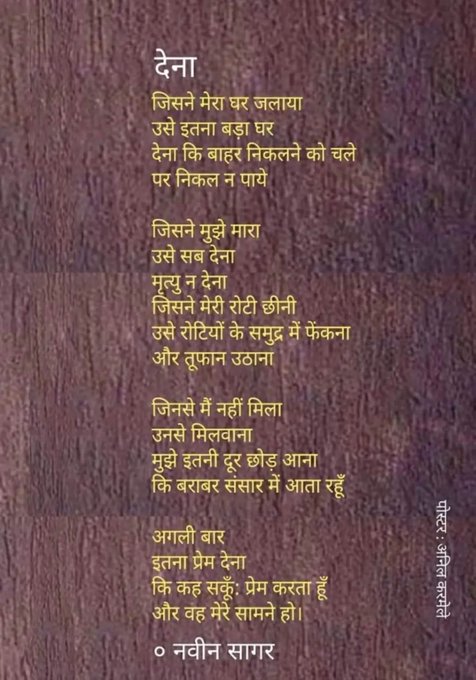 देना
जिसने मेरा घर जलाया
उसे इतना बड़ा घर
देना कि बाहर निकलने को चले
पर निकल न पाये
जिसने मुझे मारा
उसे सब देना
मृत्यु न देना
जिसने मेरी रोटी छीनी
उसे रोटियों के समुद्र में फेंकना
और तूफान उठाना
जिनसे मैं नहीं मिला
उनसे मिलवाना
मुझे इतनी दूर छोड़ आना
कि बराबर संसार में आता रहूँ
अगली बार
इतना प्रेम देना
कि कह सकूँ: प्रेम करता हूँ
और वह मेरे सामने हो।
० नवीन सागर
पोस्टर : अनिल करमेले